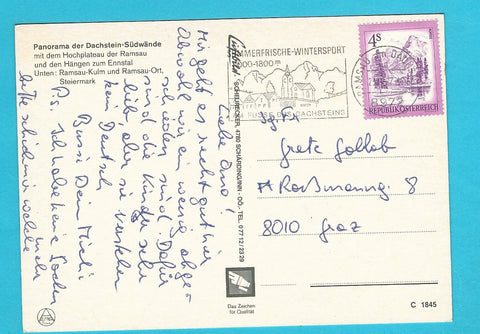 Panorama der Dachstein-Südwände
mit dem Hochplateau der Ramsau
und den Hängen zum Ennstal
Unten: Ramsau-Kulm und Ramsau-Ort,
Steiermark
Liebe Oma!
Mir geht es recht gut hier
Obwohl wir ein wenig abge-
schieden sind. Dafür
sind die Kinder sehr
lieb, aber sie verstehen
kein Deutsch
Bussi Dein Michi
P.S. Ich habe keine Socken
bitte schick mir welche nach
SOMMERFRISCHE-WINTERSPORT
1000-1800m
AM FUSSE DES DACHSTEINS
8972
4S
REPUBLIK ÖSTERREICH
4780 SCHÄRDING/INN - OÖ. - TEL. 0 77 12/23 29
Grete Gollob
Roßmanng. 8
8010 Graz
Das Zeichen
für Qualität
C 1845